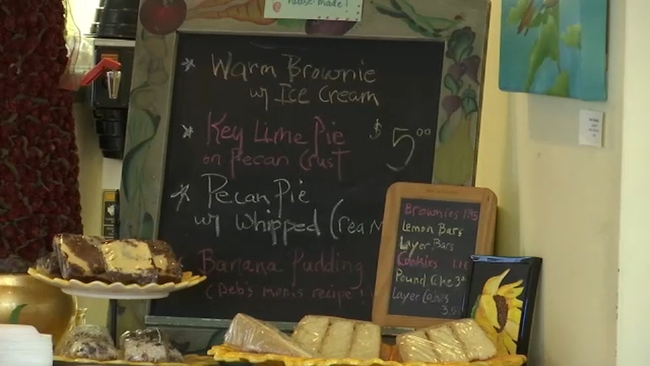 House-made!
ICE CREAM
Warm Brownie
w/ Ice Cream
Key Lime Pie
on Pecan Crust
$5.00
Pecan Pie
w/ Whipped Cream
Banana Pudding
(Deb's mom's recipe)
Brownies 1.95
Lemon Bars
Layer Bars
Cookies
Pound Cake
Layer Cakes
3.50